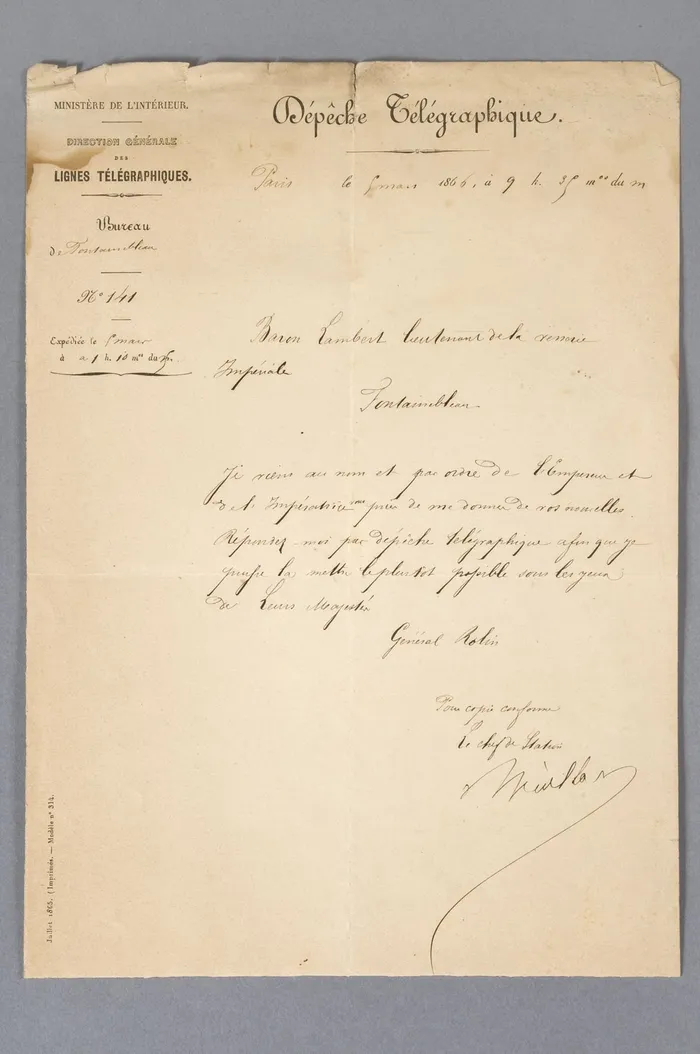 MINISTÈRE DE L'INTÉRIEUR.
DIRECTION GÉNÉRALE
DES
LIGNES TÉLÉGRAPHIQUES.
Bureau
de Fontainebleau
N° 141
Expédiée le 5 mars
à 1 h. 10 mes du
Dépêche Télégraphique.
Paris le 5 mars 1866, à 9 h. 35 mes du m
Baron Lambert lieutenant de la venerie
Impériale
Fontainebleau
Je viens au nom et par ordre de l'Empereur et
de l'Impératrice vous prier de me donner de vos nouvelles.
Répondez moi par dépêche télégraphique afin que je
puisse la mettre le plus tot possible sous les yeux
de Leurs Majestés
Général Rolin
Pour copie conforme
Le chef de Station
Juillet 1865. (Imprimés. — Modèle n° 314.